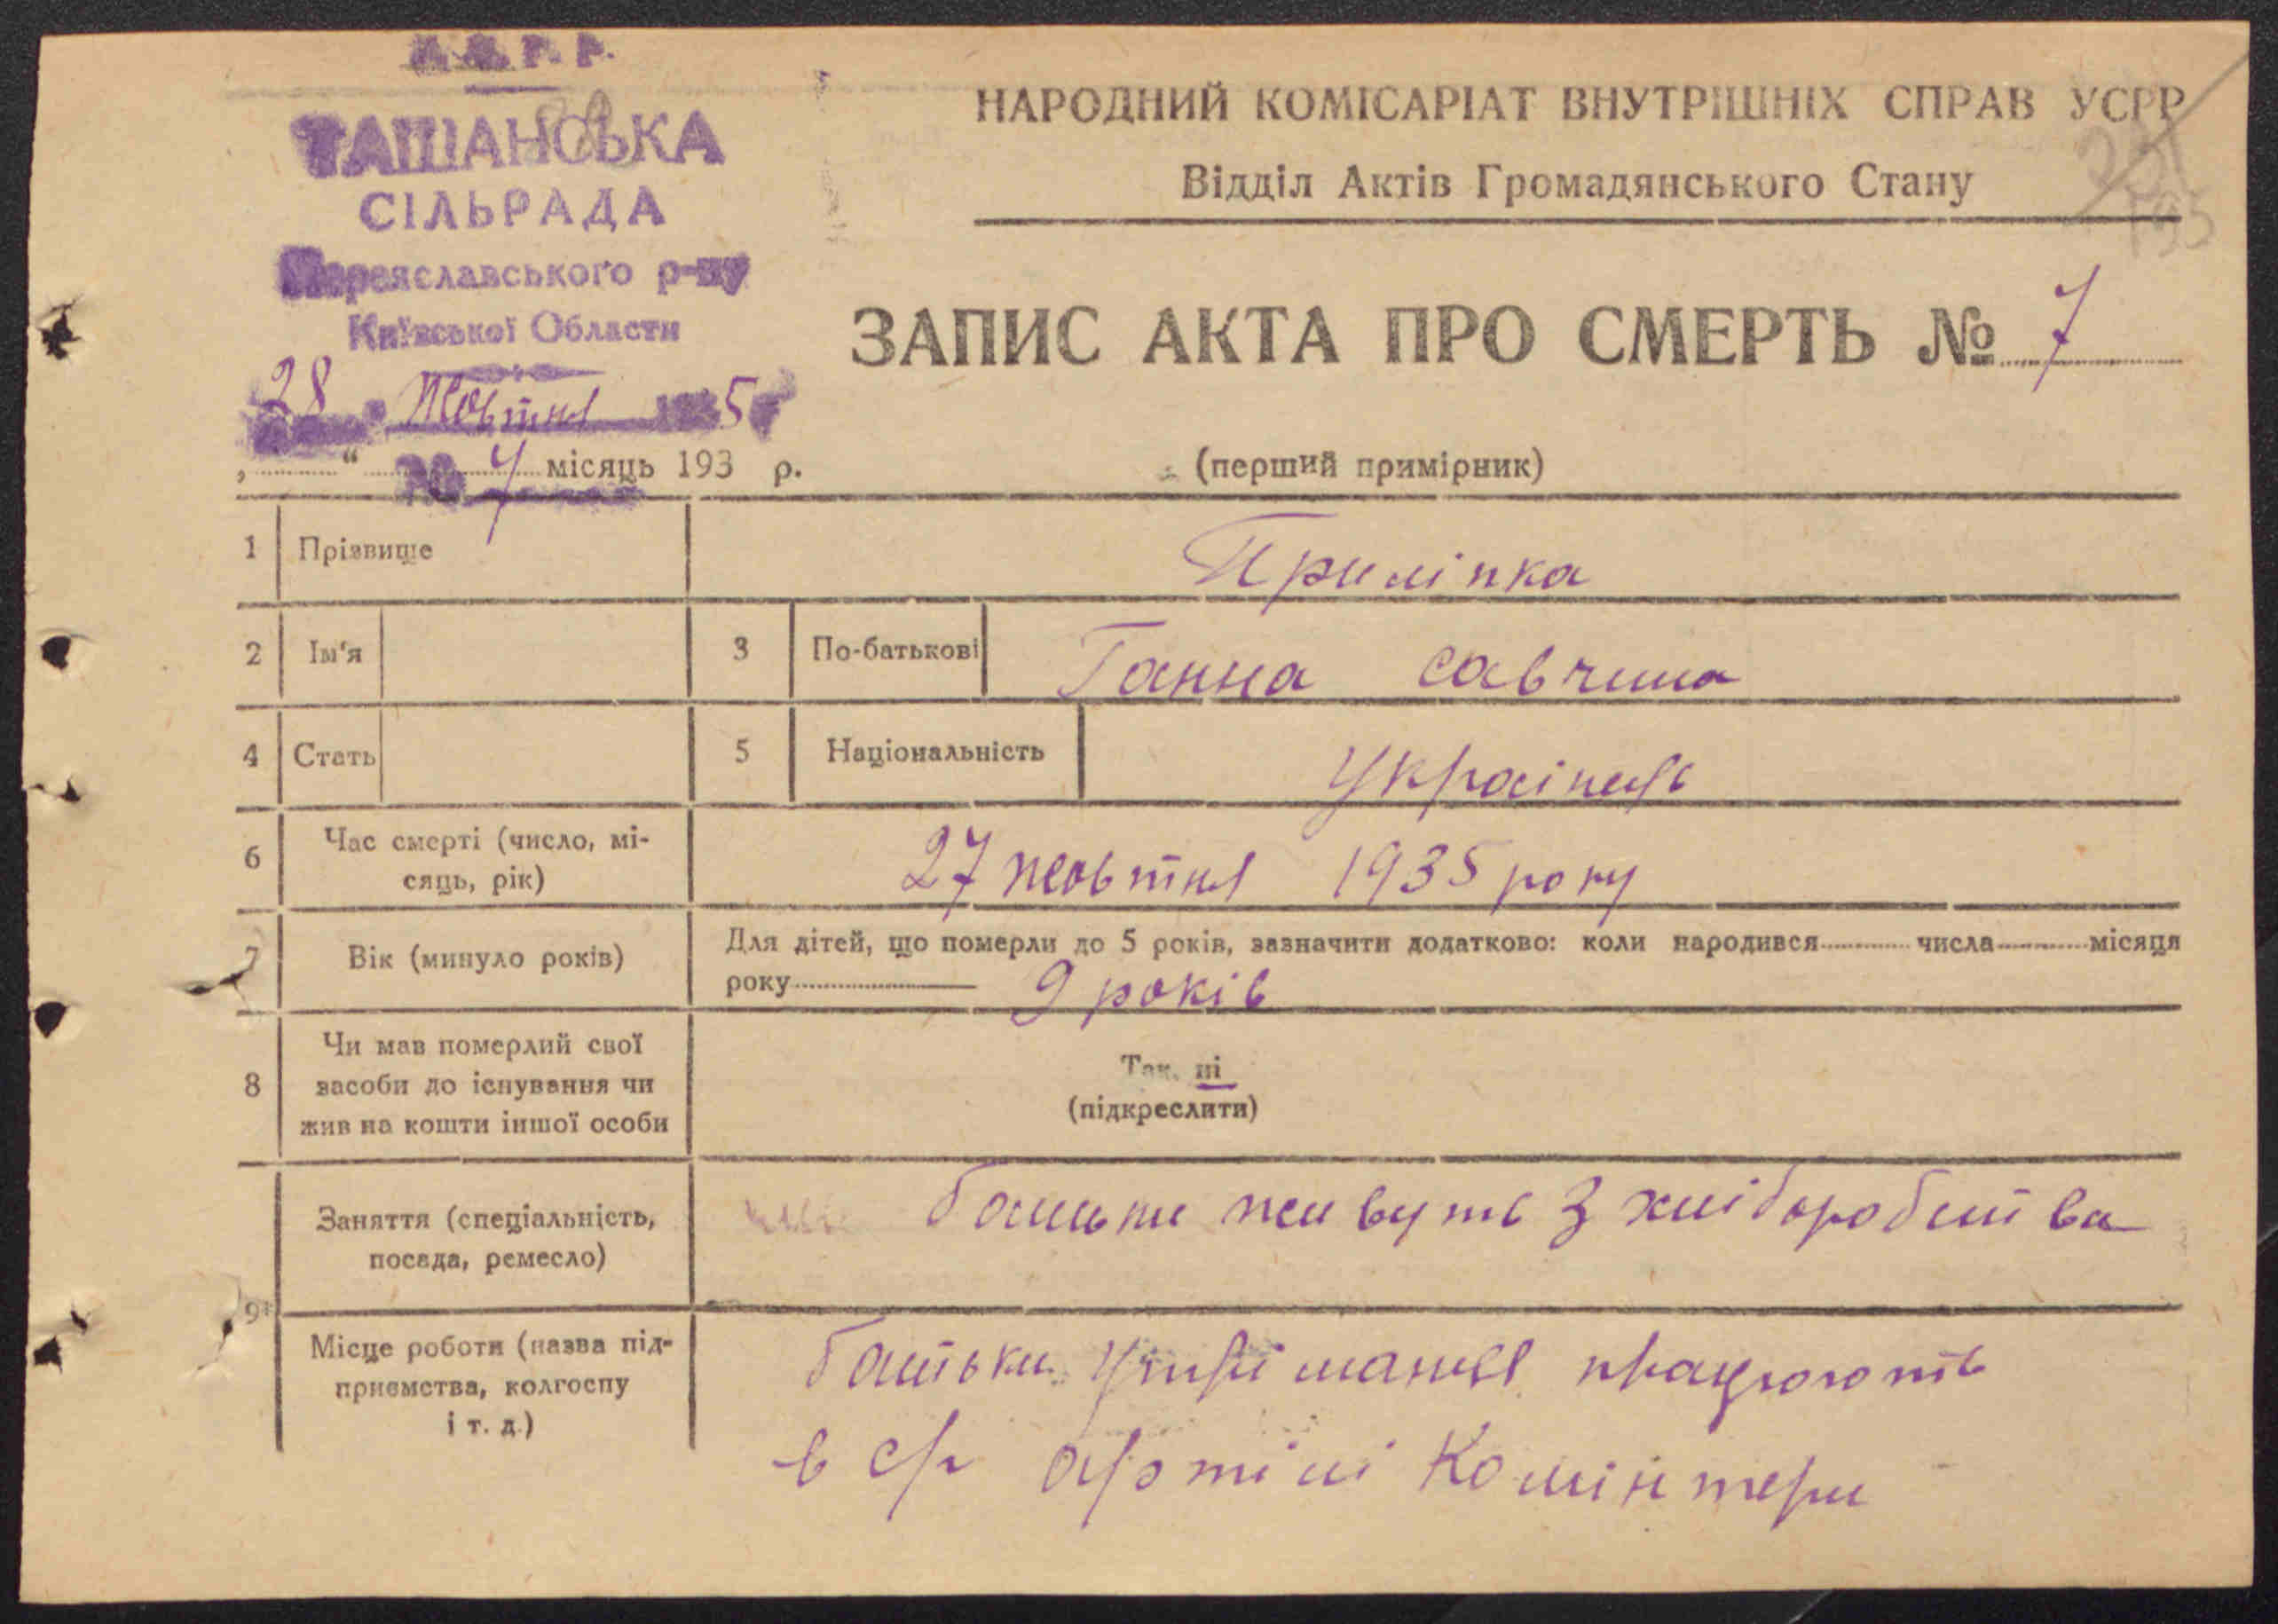 У.С.Р.Р.
ТАШАНСЬКА
СІЛЬРАДА
Переяславського р-ну
Київської Області
28 жовтня 1935
№ 7
„ “ місяць 193 р.
НАРОДНИЙ КОМІСАРІАТ ВНУТРІШНІХ СПРАВ УСРР
Відділ Актів Громадянського Стану
195
ЗАПИС АКТА ПРО СМЕРТЬ № 7
(перший примірник)
1 Прізвище Приліпка
2 Ім'я 3 По-батькові Ганна савчина
4 Стать 5 Національність Українць
6 Час смерті (число, мі-
сяць, рік) 27 жовтня 1935 року
7 Вік (минуло років) Для дітей, що померли до 5 років, зазначити додатково: коли народився числа місяця
року 9 років
8 Чи мав померлий свої
засоби до існування чи
жив на кошти іншої особи
Так, ні
(підкреслити)
9 Заняття (спеціальність,
посада, ремесло)
батьки живуть з хліборобства
Місце роботи (назва під-
приємства, колгоспу
і т. д.)
батьки працюють
в с/г артілі Комінтерн